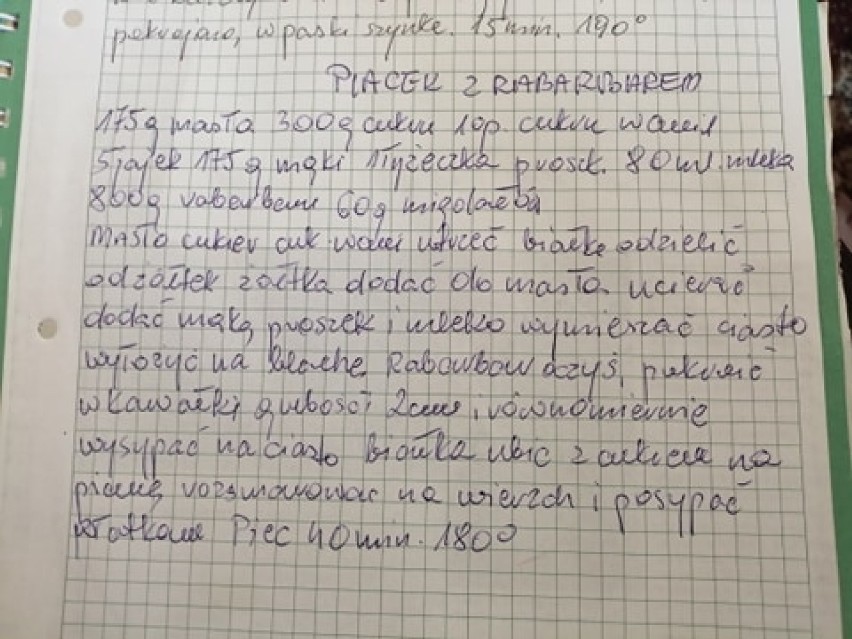 pokrojano, w paski szynkę. 15 min. 190°
PLACEK Z RABARBAREM
175g masła 300g cukru 1op. cukru wanil
5 jajek 175g mąki 1łyżeczka prosz. 80ml mleka
800g rabarbaru 60g migdałów
masło cukier cuk wanil utrzeć białka odzielić
od żółtek żółtka dodać do masła ucierać
dodać mąkę proszek i mleko wymieszać ciasto
wyłożyć na blachę Rabarbar oczyś, pokroić
w kawałki grubości 2cm i równomiernie
wysypać na ciasto białka ubić z cukrem na
pianę rozsmarować na wierzch i posypać
płatkami Piec 40 min. 180°